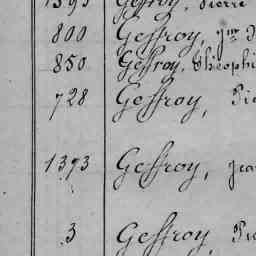 Geffroy, Pierre
800 Geffroy,
850 Geffroy, Théophi
728 Geffroy,
1393 Geffroy,
3 Geffroy